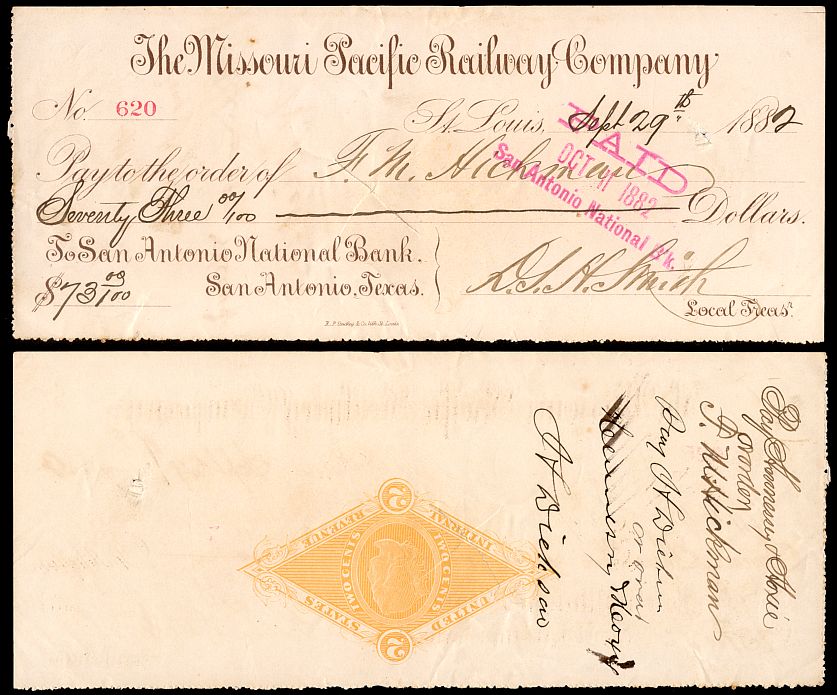 The Missouri Pacific Railway Company
No. 620 St. Louis, Sept 29th 1882
Pay to the order of F. M. Hickman
Seventy Three 00/100 Dollars.
To San Antonio National Bank,
San Antonio, Texas.
$73 00/100
D. S. H. Smith
Local Treasr.
PAID
OCT 11 1882
San Antonio National B'k.
R. P. Studley & Co. lith St. Louis
Pay Hennessy &
or order
F. M. Hickman
Pay H Dickson
or order
Hennessy
H Dickson
2
UNITED STATES
INTERNAL REVENUE
TWO CENTS
TWO CENTS
2